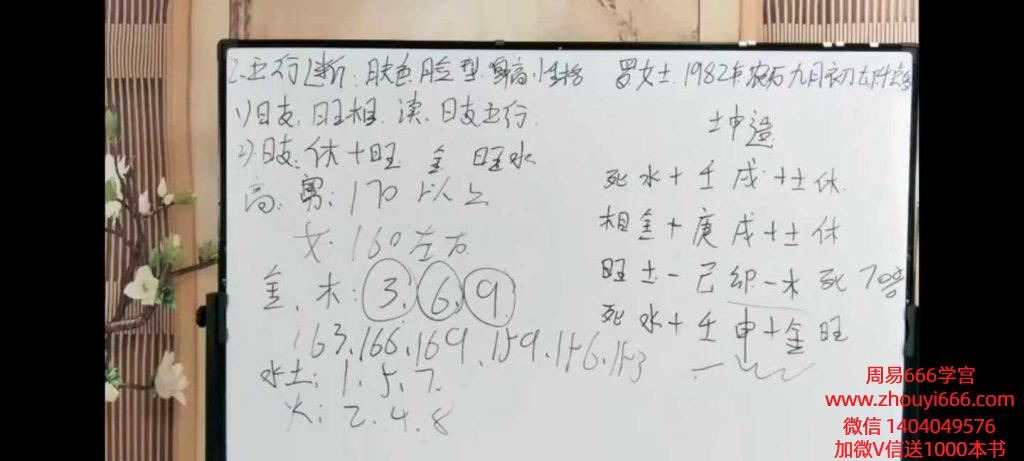 2.五行断:肤色.脸型.身高.性格
1)日支.旺相.读.日支五行.
2)日支.休+旺 金 旺水
高:男:170以上
女:160左右
金.木:3.6.9
163.166.169.159.156.153
水土:1.5.7.
火:2.4.8
罗女士.1982年.农历九月初
坤造
死水+壬戌+土休
相金+庚戌+土休
旺土-己卯-木死
死水+壬申+金旺
周易666学宫
www.zhouyi666.com
微信 1404049576
加微V信送1000本书